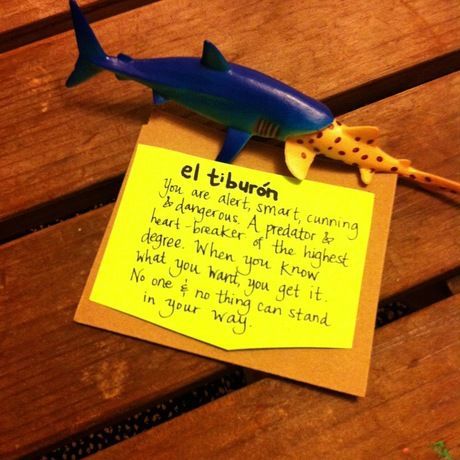 el tiburón
You are alert, smart, cunning
& dangerous. A predator &
heart-breaker of the highest
degree. When you know
what you want, you get it.
No one & no thing can stand
in your way.